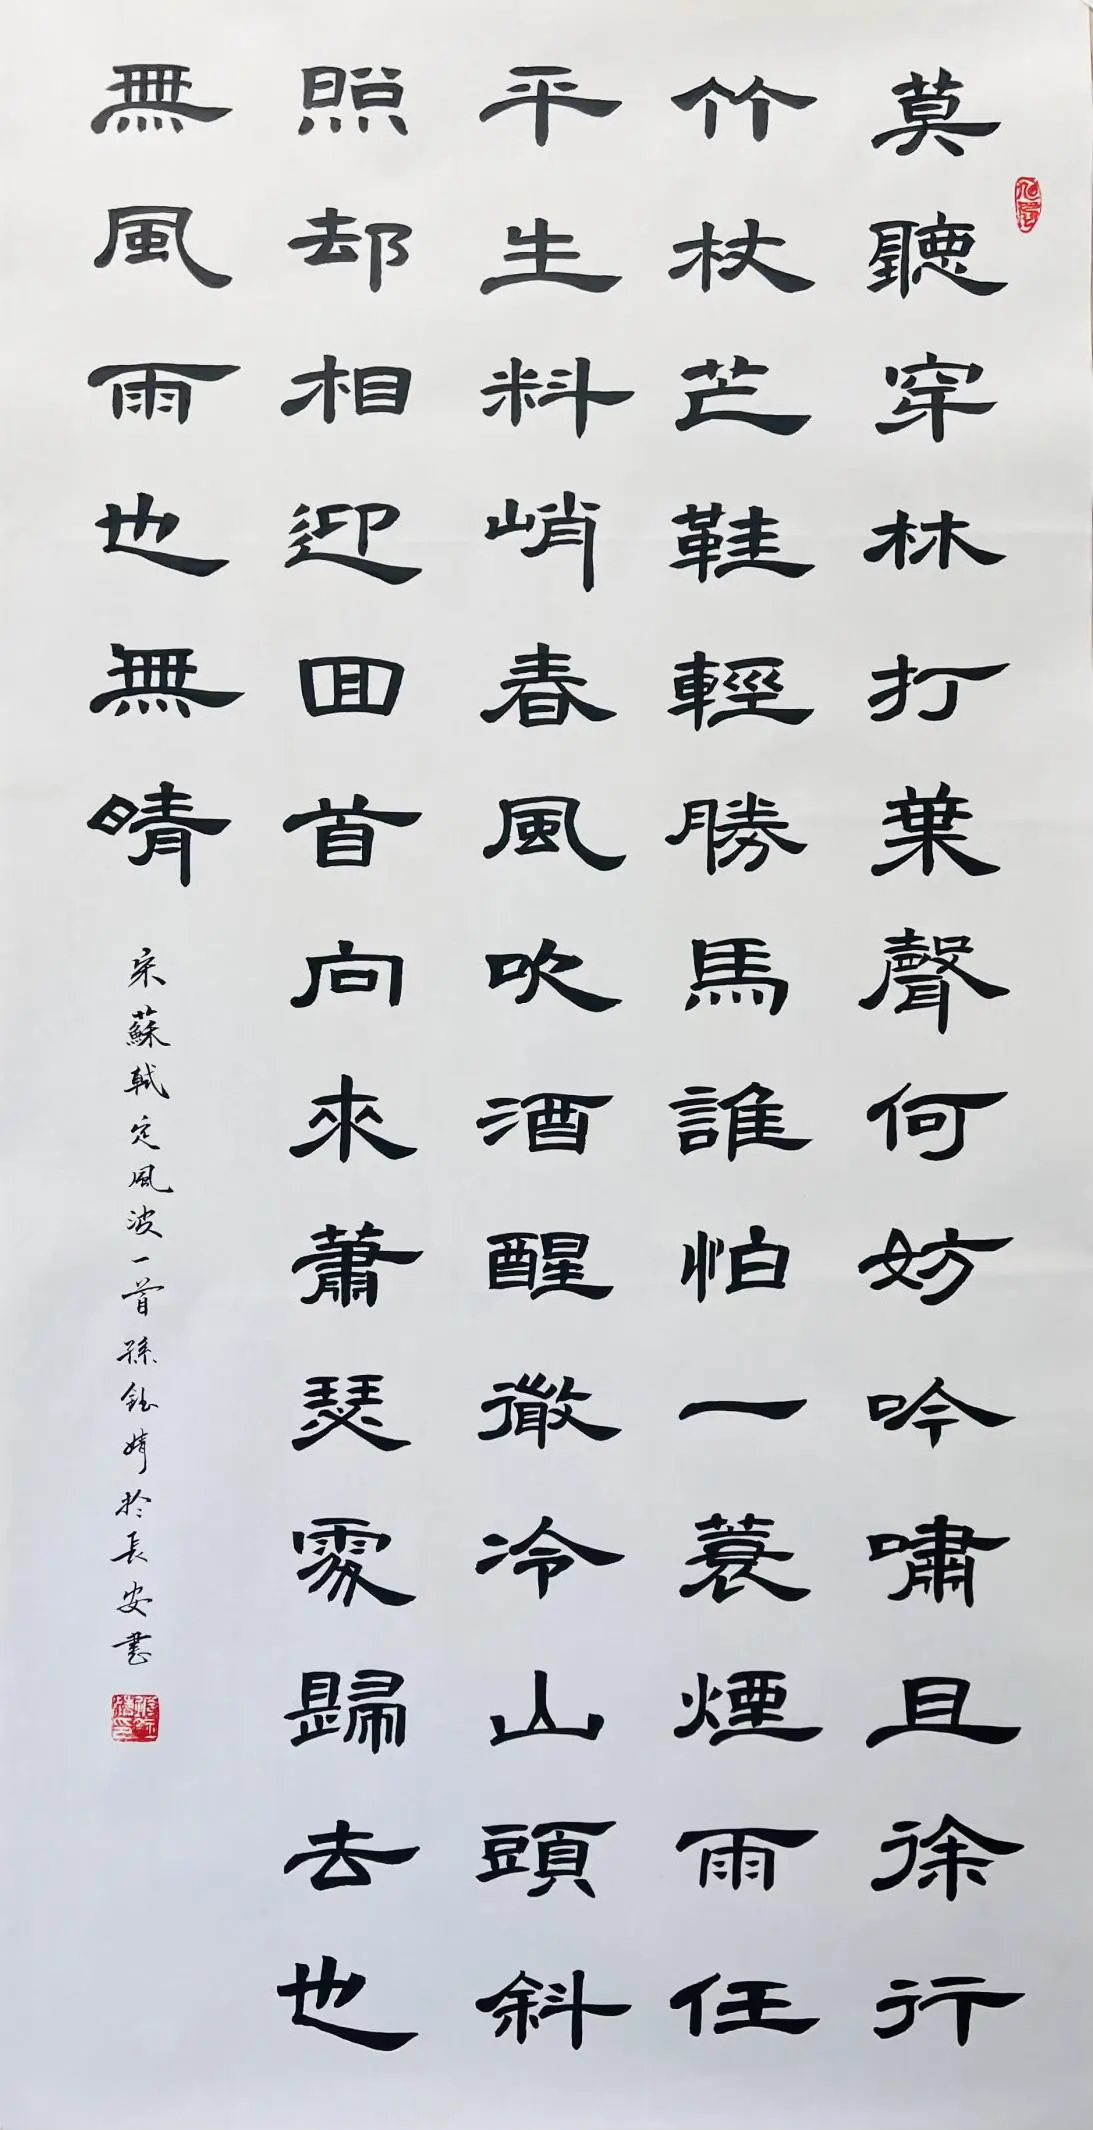 莫聽穿林打葉聲何妨吟嘯且徐行
竹杖芒鞋輕勝馬誰怕一蓑煙雨任
平生料峭春風吹酒醒徹冷山頭斜
照却相迎回首向來蕭瑟處歸去也
無風雨也無晴
宋蘇軾定風波一首孫鈺婧於長安書